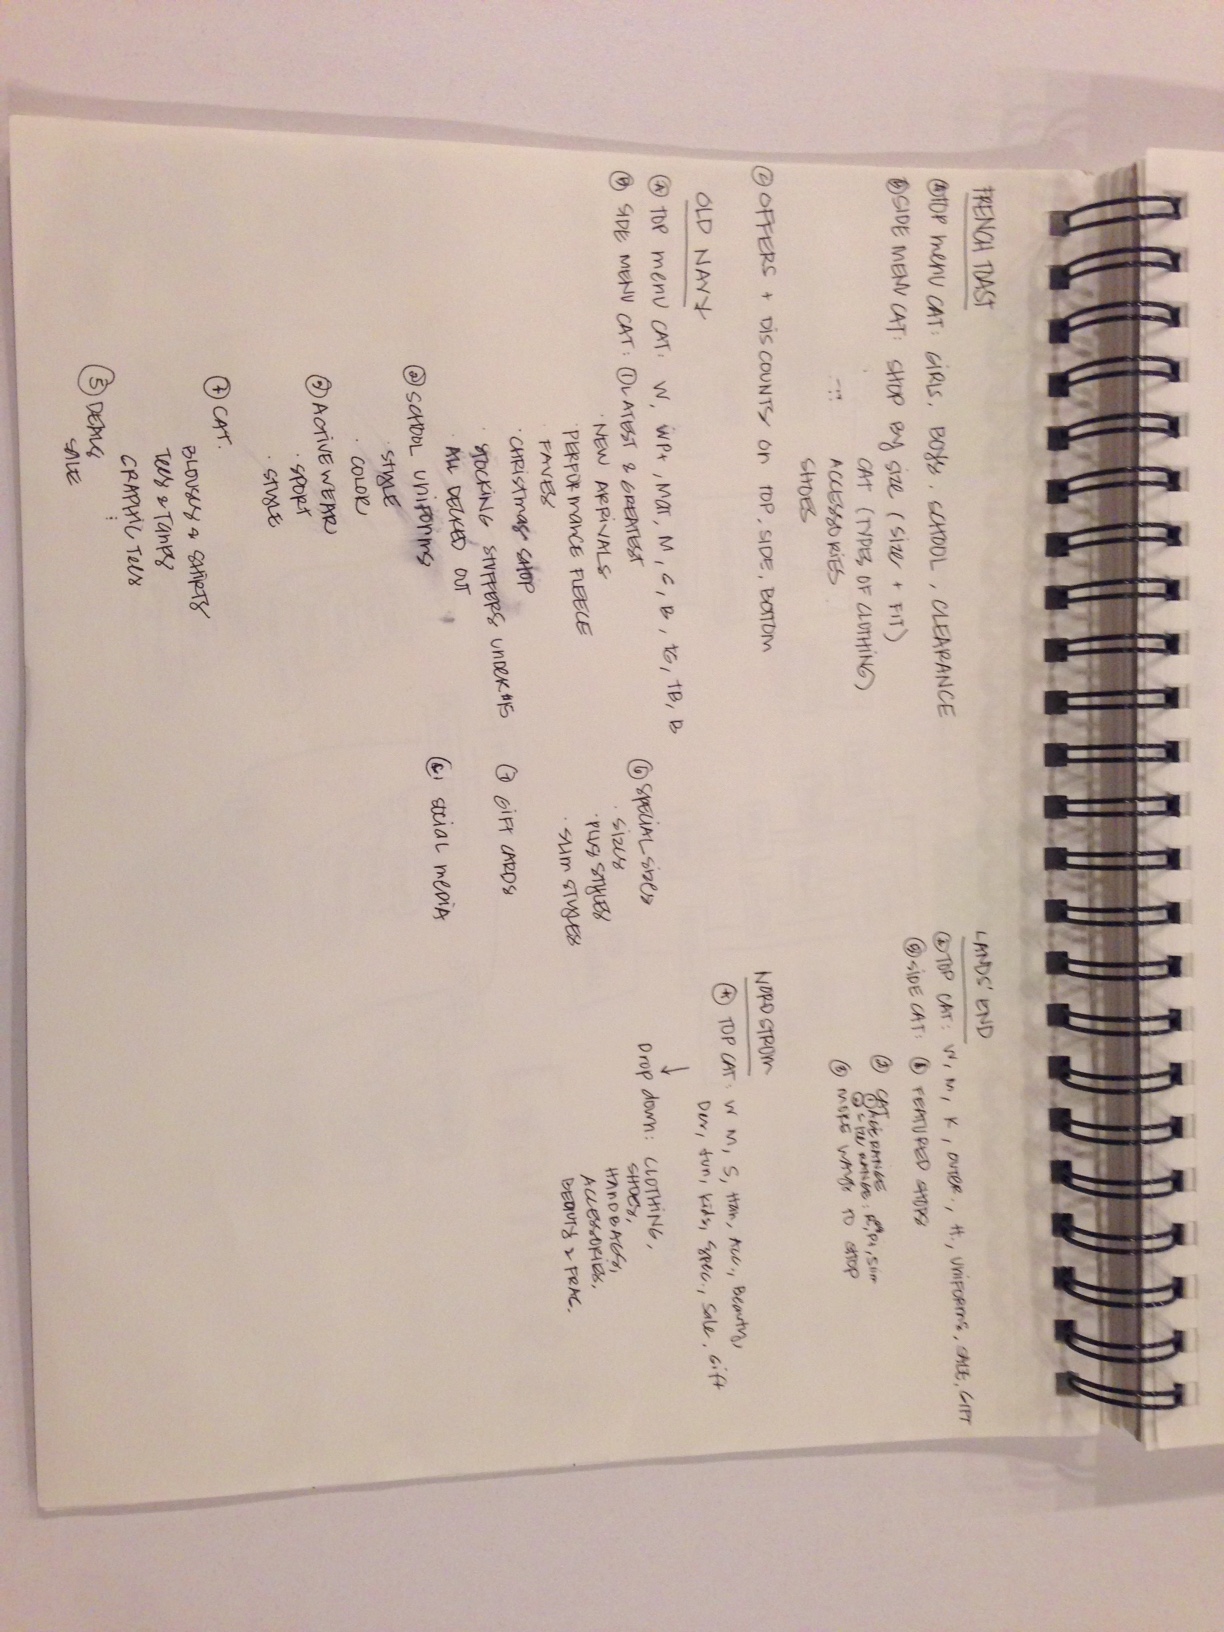 FRENCH TOAST
Ⓐ TOP menu CAT: GIRLS, BOYS, SCHOOL, CLEARANCE
Ⓑ SIDE MENU CAT: SHOP By SIZE (Size + FIT)
CAT (TYPES OF CLOTHING)
ACCESSORIES
SHOES
Ⓒ OFFERS + DISCOUNTS on TOP, SIDE, BOTTOM
OLD NAVY
Ⓐ TOP menu CAT: W, WP+, MAT, M, G, B, TG, TB, B
Ⓑ SIDE MENU CAT: ① LATEST & GREATEST
· NEW ARRIVALS
· PERFORMANCE FLEECE
· FAVES
· CHRISTMAS SHOP
· STOCKING STUFFERS UNDER $15
· ALL DECKED OUT
② SCHOOL UNIFORMS
· STYLE
· COLOR
③ ACTIVE WEAR
· SPORT
· STYLE
④ CAT.
BLOUSES & SHIRTS
Tees & TANKS
GRAPHIC Tees
⑤ DEALS
SALE
⑥ SPECIAL SIZES
· SIZES
· PLUS STYLES
· SLIM STYLES
⑦ GIFT CARDS
social media
LANDS' END
Ⓐ TOP CAT: W, M, K, OUTER., H., UNIFORMS, SALE, GIFT
Ⓑ SIDE CAT: ① FEATURED SHOPS
② CAT
③ MORE WAYS TO SHOP
NORDSTROM
Ⓐ TOP CAT: W M, S, Han, Acc., Beauty,
Den, Jun, Kids, Spec., Sale, Gift
↓
Drop down: CLOTHING,
SHOES,
HANDBAGS,
ACCESSORIES,
BEAUTY & FRAG.